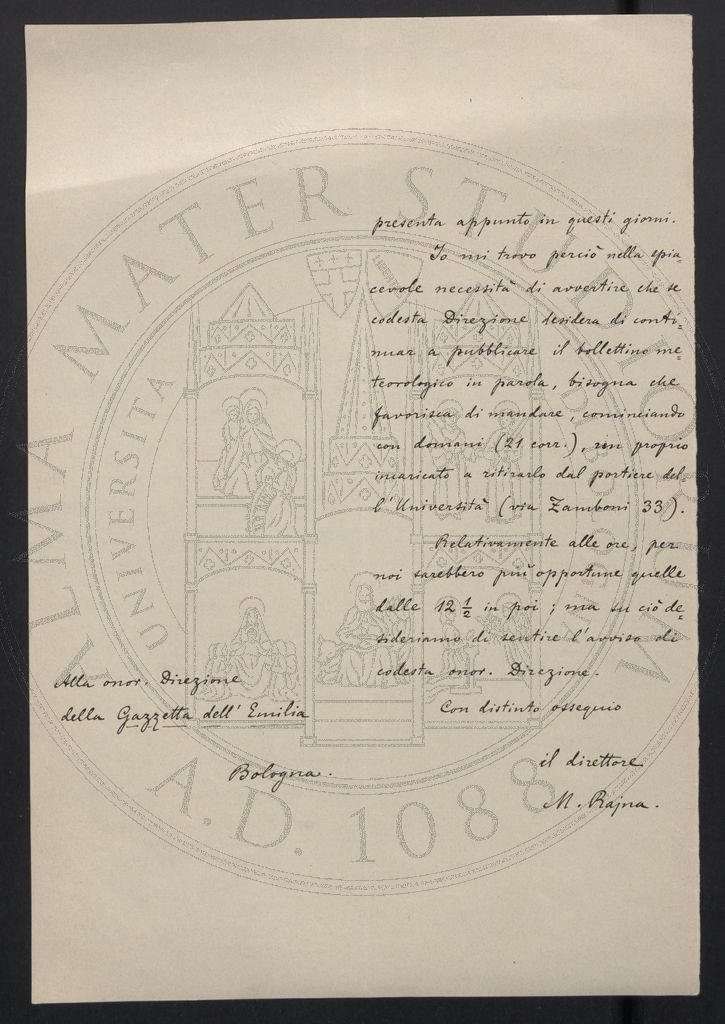 presenta appunto in questi giorni.
Io mi trovo perciò nella spia-
cevole necessità di avvertire che se
codesta Direzione desidera di conti-
nuar a pubblicare il bollettino me-
teorologico in parola, bisogna che
favorisca di mandare, cominciando
con domani (21 corr.), un proprio
incaricato a ritirarlo dal portiere del-
l'Università (via Zamboni 33).
Relativamente alle ore, per
noi sarebbero più opportune quelle
dalle 12 ½ in poi; ma su ciò de-
sideriamo di sentire l'avviso di
codesta onor. Direzione.
Con distinto ossequio
il direttore
M. Rajna.
Alla onor. Direzione
della Gazzetta dell'Emilia
Bologna.
ALMA MATER STUDIORUM
UNIVERSITA
A.D. 1088